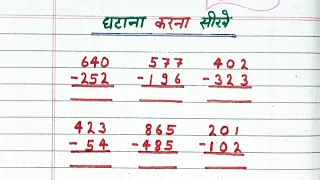 घटाना करना सीखे
640 577 402
-252 -196 -323
423 865 201
-54 -485 -102